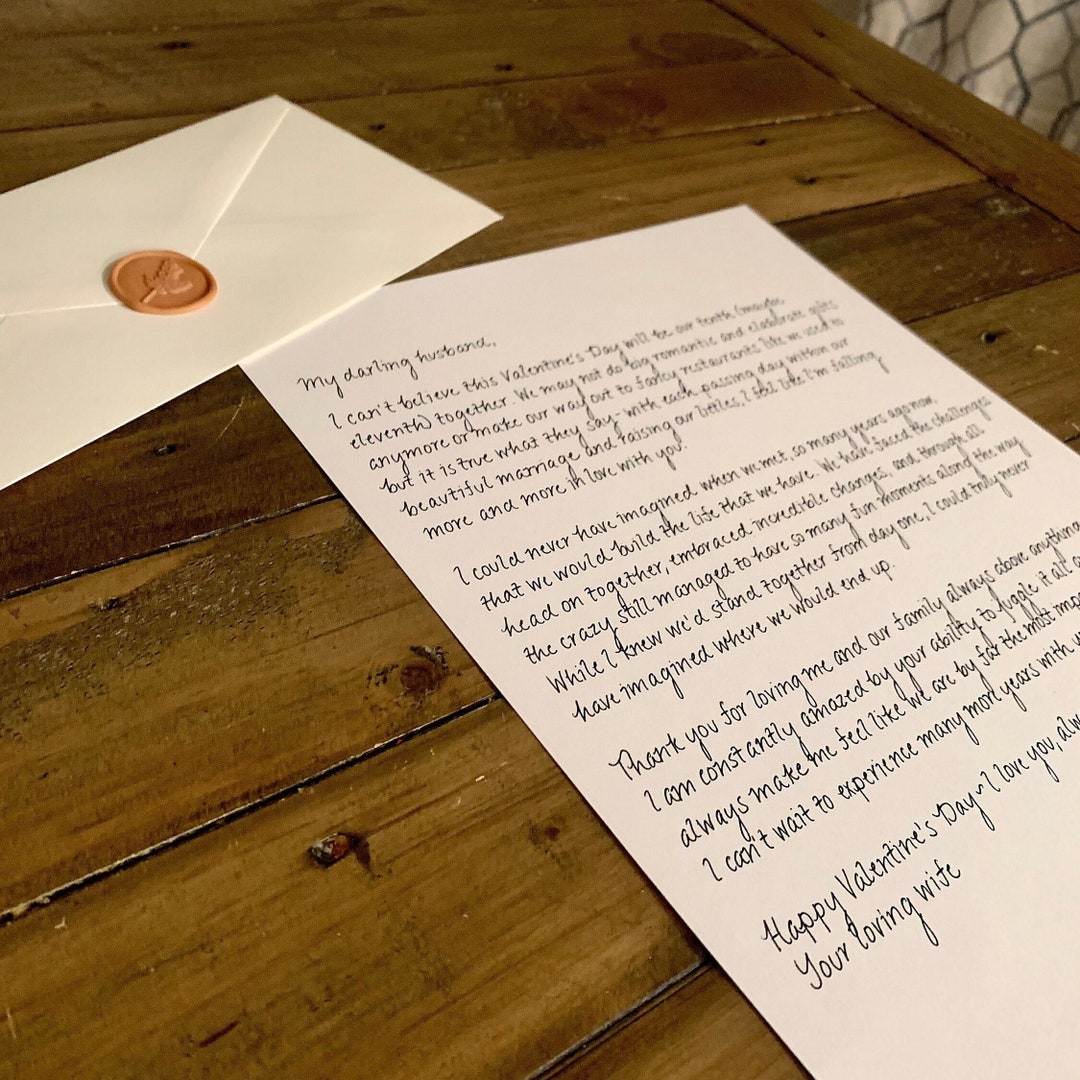 My darling husband,
I can't believe this Valentine's Day will be our tenth (maybe
eleventh) together. We may not do big romantic and elaborate gifts
anymore or make our way out to fancy restaurants like we used to
but it is true what they say - with each passing day within our
beautiful marriage and raising our littles, I feel like I'm falling
more and more in love with you.
I could never have imagined when we met, so many years ago now,
that we would build the life that we have. We have faced the challenges
head on together, embraced incredible changes, and through all
the crazy still managed to have so many fun moments along the way
While I knew we'd stand together from day one, I could truly never
have imagined where we would end up.
Thank you for loving me and our family always above anything
I am constantly amazed by your ability to juggle it all
always make me feel like we are by far the most
I can't wait to experience many more years with
Happy Valentine's Day ~ I love you,
Your loving wife